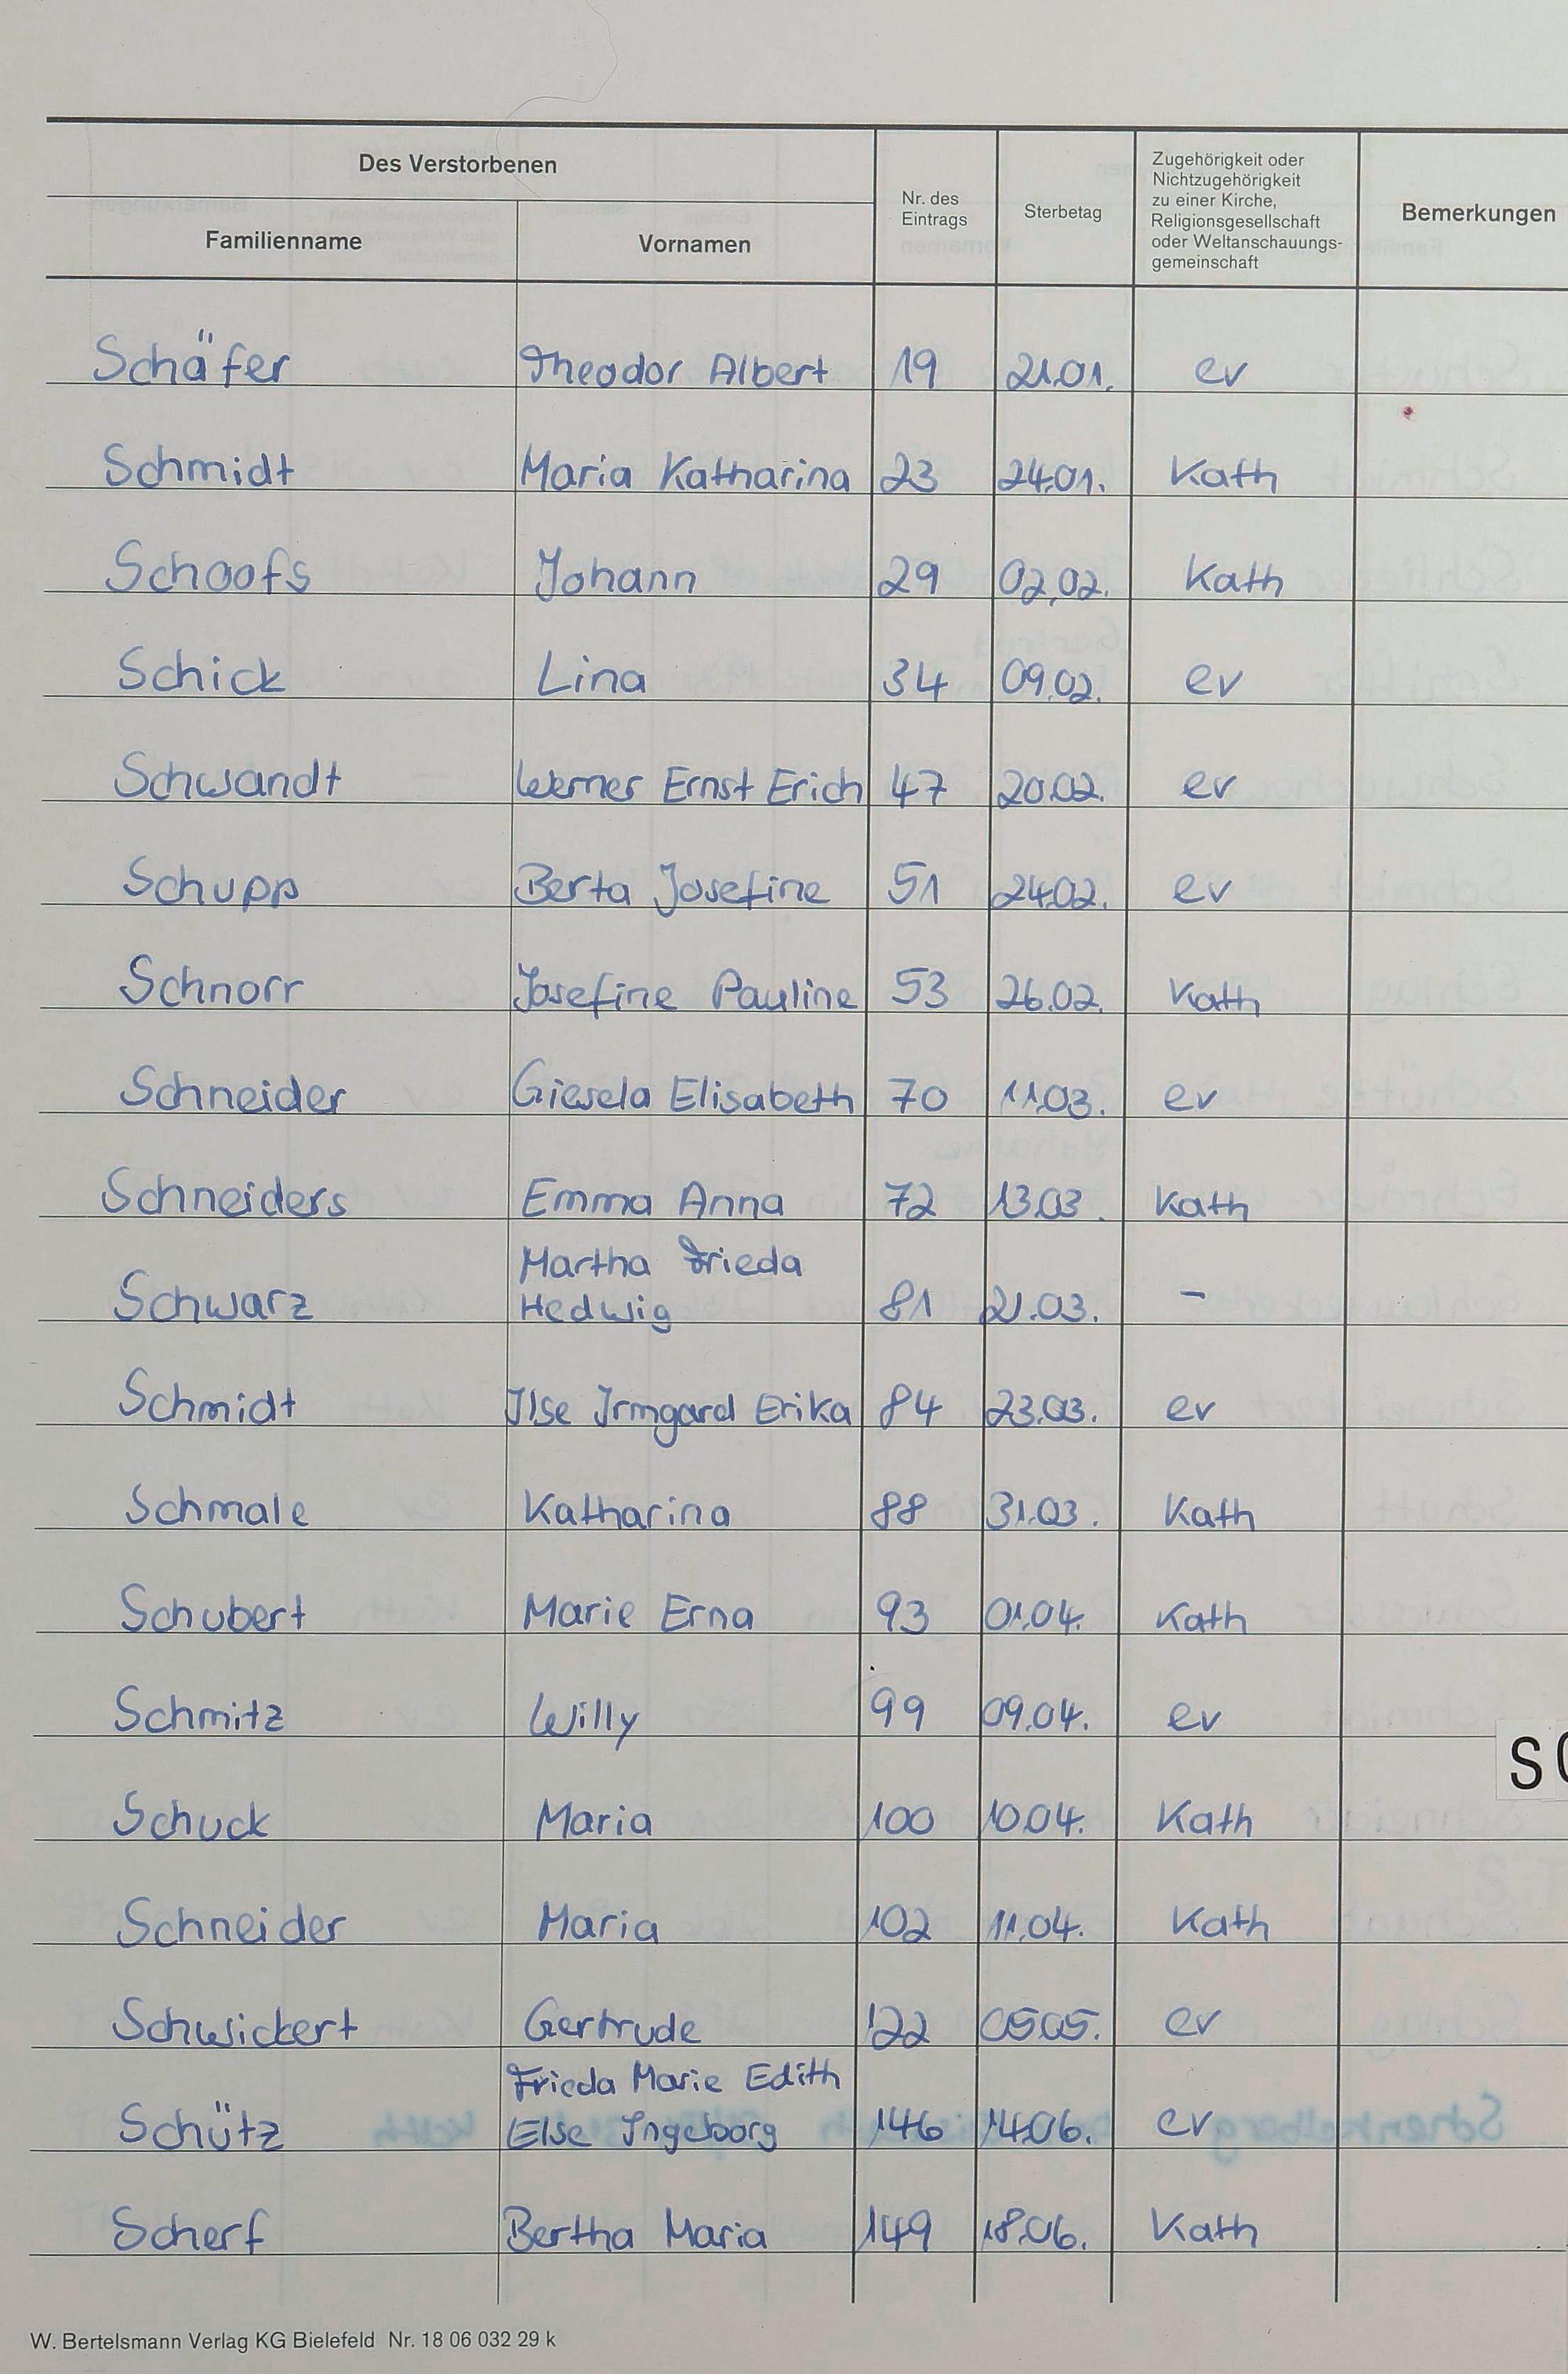 Des Verstorbenen
Familienname
Vornamen
Nr. des
Eintrags
Sterbetag
Zugehörigkeit oder
Nichtzugehörigkeit
zu einer Kirche,
Religionsgesellschaft
oder Weltanschauungs-
gemeinschaft
Bemerkungen
Schäfer Theodor Albert 19 21.01. ev
Schmidt Maria Katharina 23 24.01. Kath
Schoofs Johann 29 02.02. Kath
Schick Lina 34 09.02. ev
Schwandt Werner Ernst Erich 47 20.02. ev
Schupp Berta Josefine 51 24.02. ev
Schnorr Josefine Pauline 53 26.02. Kath
Schneider Giesela Elisabeth 70 11.03. ev
Schneiders Emma Anna 72 13.03. Kath
Martha Frieda
Schwarz Hedwig 81 21.03. -
Schmidt Ilse Irmgard Erika 84 23.03. ev
Schmale Katharina 88 31.03. Kath
Schubert Marie Erna 93 01.04. Kath
Schmitz Willy 99 09.04. ev
Schuck Maria 100 10.04. Kath
Schneider Maria 102 11.04. Kath
Schwickert Gertrude 122 05.05. ev
Frieda Marie Edith
Schütz Else Ingeborg 146 14.06. ev
Scherf Bertha Maria 149 18.06. Kath
W. Bertelsmann Verlag KG Bielefeld Nr. 18 06 032 29 k